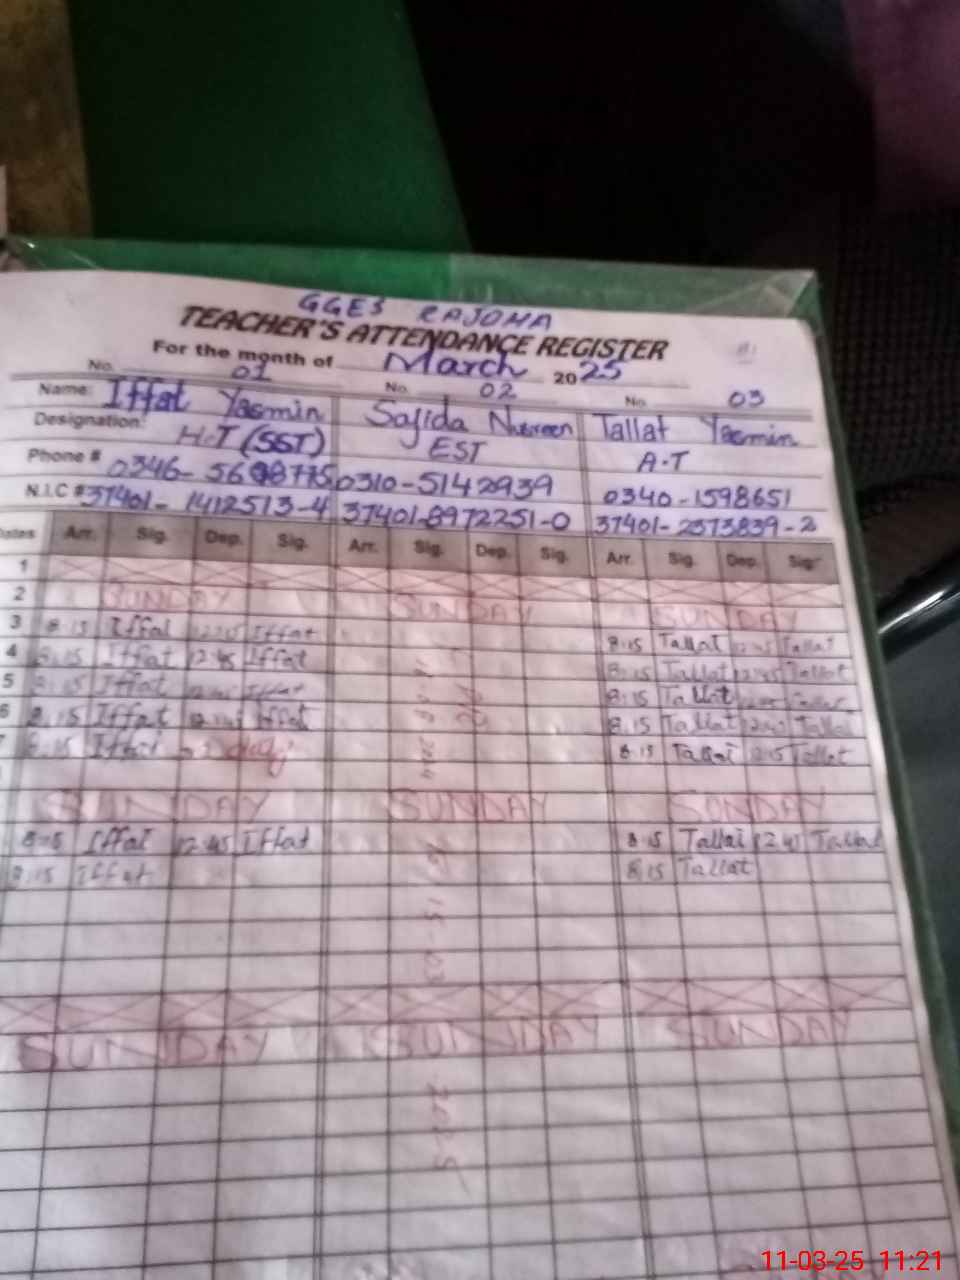 GGES RAJOHA
TEACHER'S ATTENDANCE REGISTER
For the month of March 2025
No. 01 No. 02 No. 03
Name: Iffat Yasmin Sajida Nusreen Tallat Yasmin
Designation: H.T (SST) EST A.T
Phone # 0346- 0310-5142939 0340-1598651
N.I.C # 37401-1412513-4 37401-8972251-0 37401-2573839-2
Dates Arr. Sig. Dep. Sig. Arr. Sig. Dep. Sig. Arr. Sig. Dep. Sig.
1
2 SUNDAY SUNDAY SUNDAY
3 8:15 Iffat Iffat 8:15 Tallat 12:45 Tallat
4 8:15 Iffat 12:45 Iffat 8:15 Tallat 12:45 Tallat
5 8:15 Iffat Iffat 8:15 Tallat
6 8:15 Iffat 12:45 Iffat 8:15 Tallat 12:45 Tallat
7 8:15 Iffat 8:15 Tallat Tallat
SUNDAY SUNDAY SUNDAY
8:15 Iffat 12:45 Iffat 8:15 Tallat 12:45 Tallat
8:15 Iffat 8:15 Tallat
15-03
SUNDAY SUNDAY SUNDAY
-2025
11-03-25 11:21